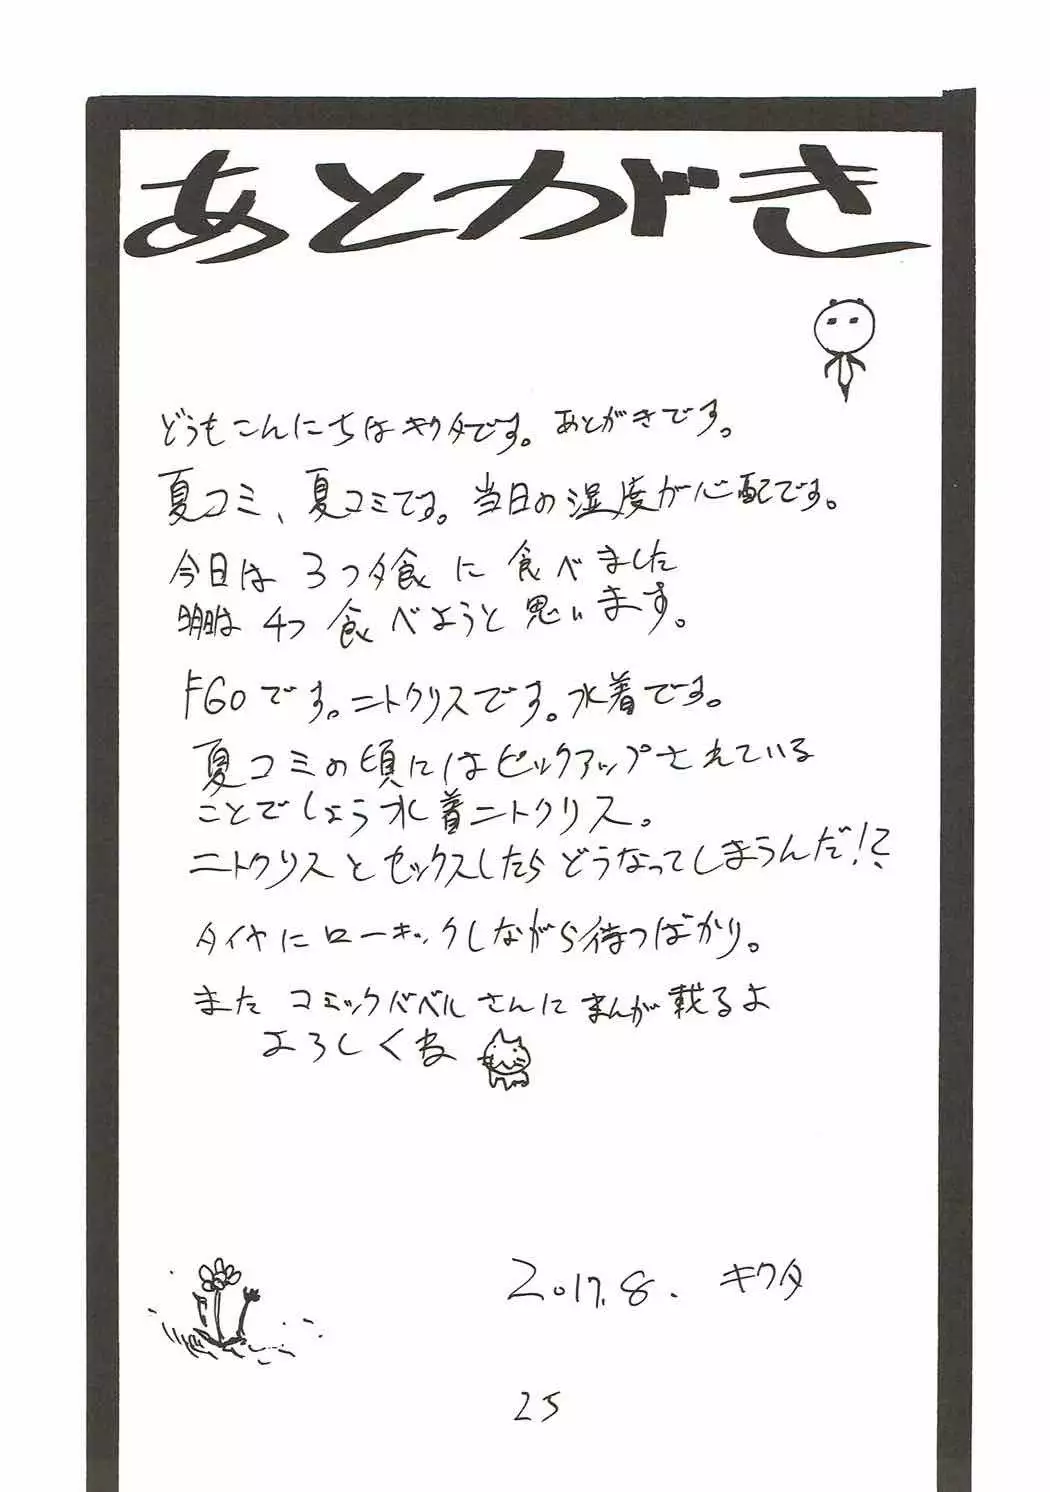 あとがき
どうもこんにちはキクタです。あとがきです。
夏コミ、夏コミです。当日の湿度が心配です。
今日は3つ夕食に食べました
明日は4つ食べようと思います。
FGOです。ニトクリスです。水着です。
夏コミの頃にはピックアップされている
ことでしょう水着ニトクリス。
ニトクリスとセックスしたらどうなってしまうんだ!?
タイヤにローキックしながら待つばかり。
またコミックバベルさんにまんが載るよ
よろしくね
2017.8. キクタ
25